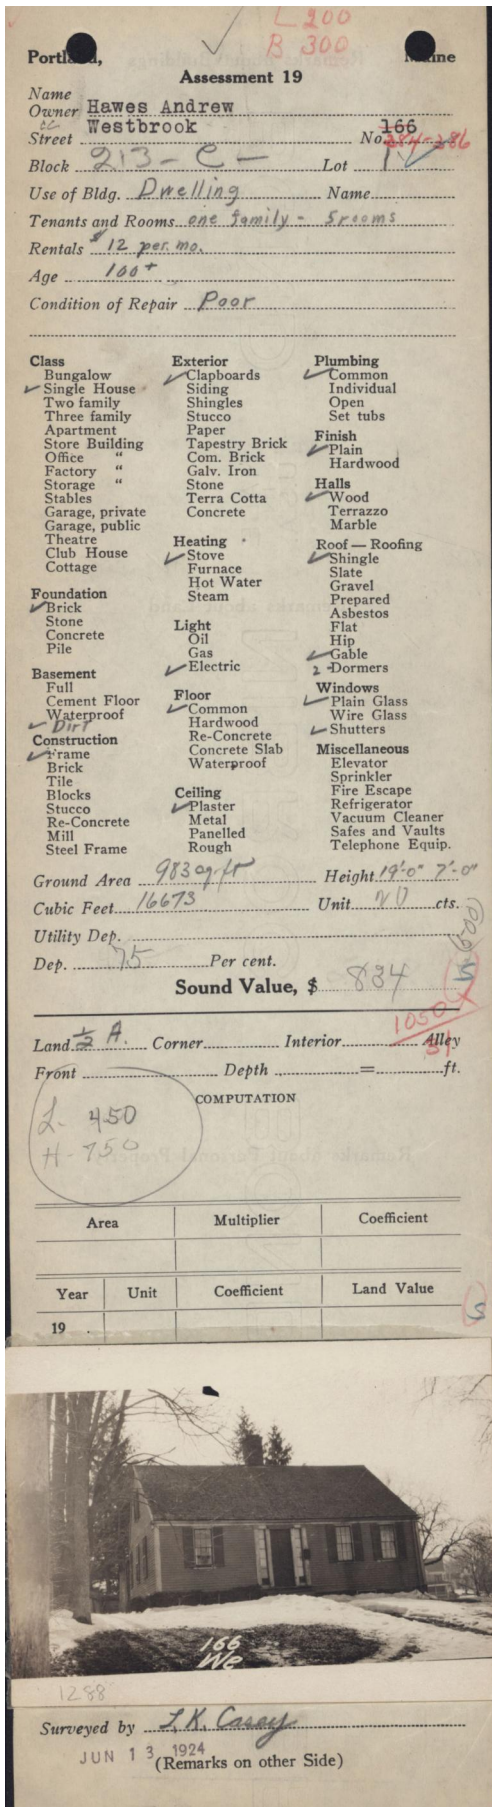 L 200
B 300
Portland, Maine
Assessment 19
Name
Owner Hawes Andrew
Street Westbrook No. 166 284-286
Block 213-C- Lot 1
Use of Bldg. Dwelling Name
Tenants and Rooms one family - 5 rooms
Rentals $12 per. mo.
Age 100+
Condition of Repair Poor
Class
Bungalow
Single House
Two family
Three family
Apartment
Store Building
Office "
Factory "
Storage "
Stables
Garage, private
Garage, public
Theatre
Club House
Cottage
Foundation
Brick
Stone
Concrete
Pile
Basement
Full
Cement Floor
Waterproof
Dirt
Construction
Frame
Brick
Tile
Blocks
Stucco
Re-Concrete
Mill
Steel Frame
Exterior
Clapboards
Siding
Shingles
Stucco
Paper
Tapestry Brick
Com. Brick
Galv. Iron
Stone
Terra Cotta
Concrete
Heating
Stove
Furnace
Hot Water
Steam
Light
Oil
Gas
Electric
Floor
Common
Hardwood
Re-Concrete
Concrete Slab
Waterproof
Ceiling
Plaster
Metal
Panelled
Rough
Plumbing
Common
Individual
Open
Set tubs
Finish
Plain
Hardwood
Halls
Wood
Terrazzo
Marble
Roof — Roofing
Shingle
Slate
Gravel
Prepared
Asbestos
Flat
Hip
Gable
2 Dormers
Windows
Plain Glass
Wire Glass
Shutters
Miscellaneous
Elevator
Sprinkler
Fire Escape
Refrigerator
Vacuum Cleaner
Safes and Vaults
Telephone Equip.
Ground Area 983 sq. ft Height 19'-0" 7'-0"
Cubic Feet 16673 Unit 20 cts.
Utility Dep.
Dep. 75 Per cent.
Sound Value, $ 834
1050
51
Land ½ A. Corner Interior Alley
Front Depth = ft.
COMPUTATION
L- 450
H- 750
Area Multiplier Coefficient
Year Unit Coefficient Land Value
19
166
We
1288
Surveyed by L.K. Casey
JUN 13 1924
(Remarks on other Side)